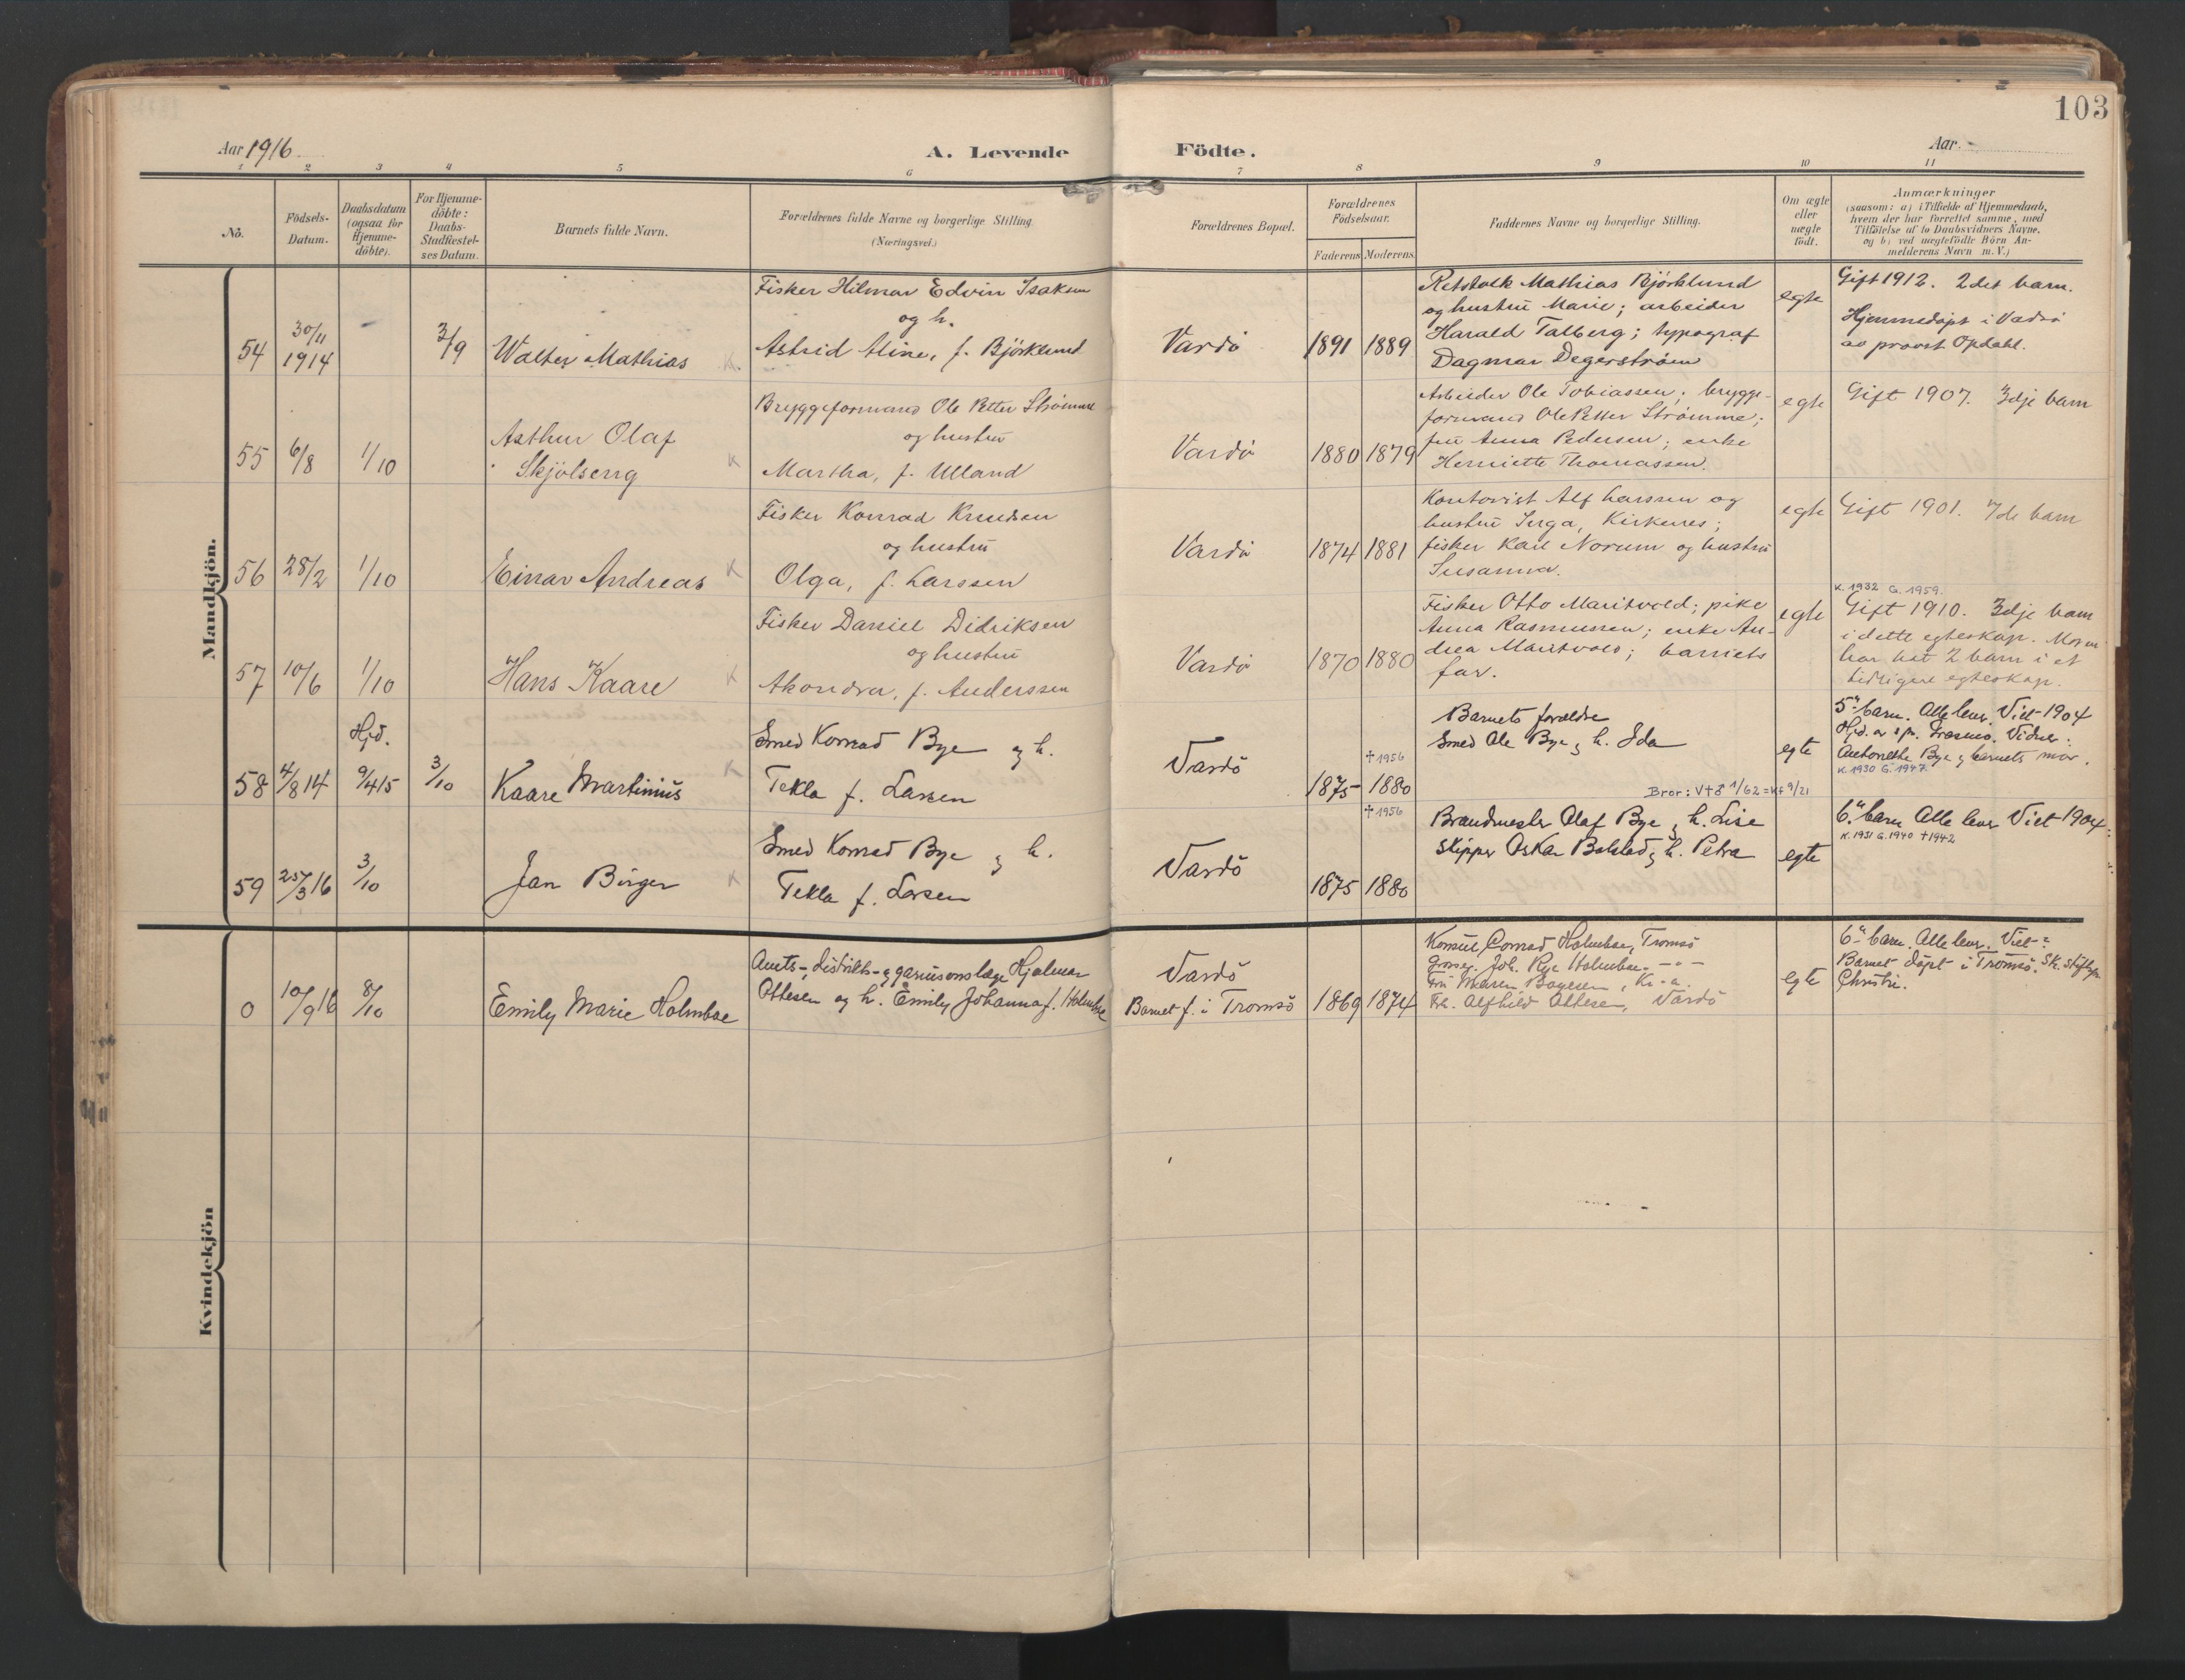 103
Aar 1916
A. Levende
Födte.
Aar.
1 2 3 4 5 6 7 8 9 10 11
No.
Födsels-
Datum.
Daabsdatum
(ogsaa for
Hjemme-
döbte).
For Hjemme-
döbte:
Daabs-
Stadfæstel-
ses Datum.
Barnets fulde Navn.
Forældrenes fulde Navne og borgerlige Stilling.
(Næringsvei.)
Forældrenes Bopæl.
Forældrenes
Födselsaar.
Faderens
Moderens
Faddernes Navne og borgerlige Stilling.
Om ægte
eller
uægte
födt.
Anmærkninger
(saasom: a) i Tilfælde af Hjemmedaab,
hvem der har forrettet samme, med
Tilföielse af to Daabsvidners Navne.
og b) ved uægtefödte Börn An-
melderens Navn m. V.)
Mandkjön.
54
30/11
1914
3/9
Walter Mathias
Fisker Hilmar Edvin Isaksen
og h.
Astrid Aline, f. Björklund
Vardö
1891
1889
Mathias Björklund
og hustru Marie; arbeider
Harald Talberg; typograf
Dagmar Degerström
egte
Gift 1912. 2det barn.
Hjemmedöpt i Vadsö
av provst Opdahl.
55
6/8
1/10
Arthur Olaf
Skjölseng
K
Bryggeformand Ole Petter Strömme
og hustru
Martha, f. Ulland
Vardö
1880
1879
Arbeider Ole Tobiassen; brygge-
formand Ole Petter Strömme;
fru Anna Pedersen; enke
Henriette Thomassen.
egte
Gift 1907. 3dje barn
56
28/2
1/10
Einar Andreas
K
Fisker Konrad Knudsen
og hustru
Olga, f. Larssen
Vardö
1874
1881
Kontorist Alf Larssen og
hustru Inga, Kirkenes;
fisker Karl Norum og hustru
Susanna.
egte
Gift 1901. 7de barn
57
10/6
1/10
Hans Kaare
K
Fisker Daniel Didriksen
og hustru
f. Anderssen
Vardö
1870
1880
Fisker Otto Maritvold; pike
Anna Rasmussen; enke An-
drea Maritvold; barnets
far.
egte
K. 1932 G. 1959.
Gift 1910. 3dje barn
i dette egteskap. Moren
har hat 2 barn i et
tidligere egteskap.
58
4/8 14
Hjd.
9/4 15
3/10
Kaare Martinius
K
Smed Konrad Bye og h.
Tekla f. Larsen
Vardö
1875
† 1956
1880
Barnets forældre
Smed Ole Bye og h. Ida
Bror: V+8 1/62 = Kf 9/21
egte
5te barn. Alle lever. Viet 1904
Hjd. av Vidner:
Anthonethe Bye og barnets mor.
K. 1930 G. 1947.
59
25/3 16
3/10
Jan Birger
K
Smed Konrad Bye og h.
Tekla f. Larsen
Vardö
1875
† 1956
1880
Brandmester Olaf Bye og h. Lise
Skipper Oskar Bolstad og h. Petra
egte
6te barn Alle lever Viet 1904
K. 1931 G. 1940 † 1942
Kvindekjön
0
10/9 16
8/10
Emily Marie Holmboe
Amts-, distrikts- og garnisonslæge Hjalmar
Ottesen og h. Emily Johanna f. Holmboe
Vardö
Barnet f. i Tromsö
1869
1874
Konsul Conrad Holmboe, Tromsö
Grosser. Joh. Rye Holmboe. - " -
Fru Maren Boyesen, Kr-a.
Frk. Alfhild Ottesen, Vardö
egte
6te barn. Alle lever. Viet
Barnet döpt i Tromsö.
Christie.